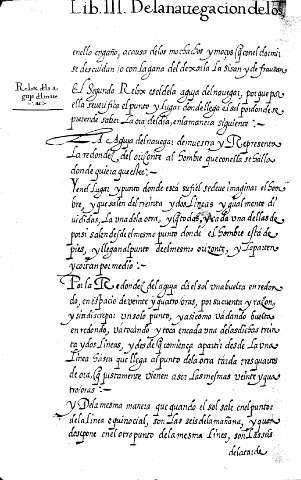 Lib. III. De la nauegacion de los
en ello engaño, a causa de los mochachos y moços q̃ en el dormir
se descuidan, o con la gana del dexarla
Relox del a
guja del naue
gar
El Segundo Relox es el del aguja del nauegar, por que por
ella se uerifica el punto y lugar donde llega el sol por donde se
puede saber la ora del dia, en la manera siguiente :
La Aguja del nauegar demuestra y Representa
la redondez del orizonte al hombre que con ella se halla
donde quiera que este:
y en el Lugar y punto donde está sutil se deue imaginar el hom
bre, y que salen del treinta y dos Lineas y igualmente di
uididas La vna de la otra, y q̃ todas, y cada vna dellas de
por si salen desde el mesmo punto donde el hombre está de
pies, y llegan al punto del mesmo orizonte, y lo parten
y cortan por medio :
Por la Redondez del aguja da el sol vna buelta en redon
do, en espacio de veinte y quatro oras, por su cuenta y razon,
y sin discrepar vn solo punto, y asi como va dando buelta
en redondo, va rodando y toca en cada vna de las dichas trein
ta y dos Lineas, y desde q̃ comiença a partir desde La vna
Linea hasta que llega al punto de la otra tarda tres quartos
de ora, q̃ justamente vienen a ser Las mesmas veinte y qua
tro oras :
y De la mesma manera que quando el sol sale en el punto
de la Linea equinocial, son Las seis de la mañana, y quan
do se pone en el otro punto de la mesma Linea, son Las seis
de la tarde